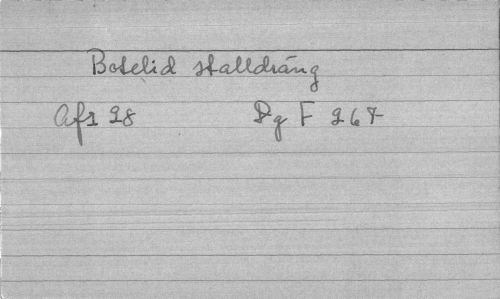 Botelid stalldräng
Afs 28 Pg F 267